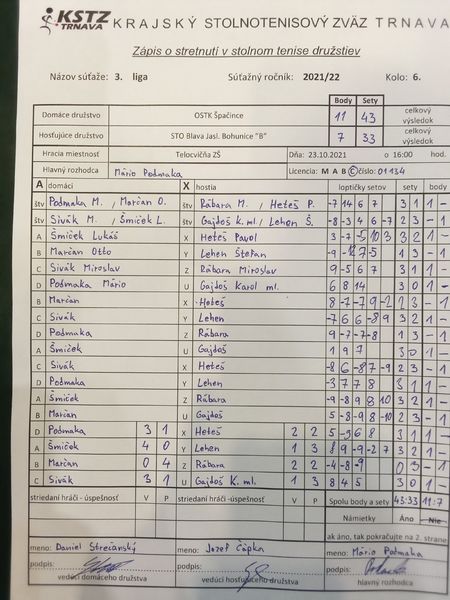 KSTZ TRNAVA KRAJSKÝ STOLNOTENISOVÝ ZVÄZ TRNAVA
Zápis o stretnutí v stolnom tenise družstiev
Názov súťaže: 3. liga Súťažný ročník: 2021/22 Kolo: 6.
Body Sety
Domáce družstvo OSTK Špačince 11 43 celkový výsledok
Hosťujúce družstvo STO Blava Jasl. Bohunice "B" 7 33 celkový výsledok
Hracia miestnosť Telocvičňa ZŠ Dňa: 23.10.2021 o 16:00 hod.
Hlavný rozhodca Mário Podmaka Licencia: M A B C číslo: 01134
A domáci X hostia loptičky setov sety body
štv Podmaka M. / Marčan O. štv Rábara M. / Heteš P. -7 14 6 7 3 1 1 -
štv Sivák M. / Šmiček L. štv Gajdoš K. ml. / Lehen Š. -8 -3 4 6 -7 2 3 - 1
A Šmiček Lukáš X Heteš Pavol 3 -7 -5 10 3 3 2 1 -
B Marčan Otto Y Lehen Štefan 1 3 - 1
C Sivák Miroslav Z Rábara Miroslav 9 -5 6 7 3 1 1 -
D Podmaka Mário U Gajdoš Karol ml. 6 8 14 3 0 1 -
B Marčan X Heteš 8 -7 -7 9 -2 2 3 - 1
C Sivák Y Lehen -7 6 6 -8 9 3 2 1 -
D Podmaka Z Rábara 9 -7 -7 -8 1 3 - 1
A Šmiček U Gajdoš 1 9 7 3 0 1 -
C Sivák X Heteš -8 6 -8 7 -9 2 3 - 1
D Podmaka Y Lehen -3 7 7 8 3 1 1 -
A Šmiček Z Rábara -9 -8 9 8 10 3 2 1 -
B Marčan U Gajdoš 5 -8 9 -8 -10 2 3 - 1
D Podmaka 3 1 X Heteš 2 2 5 -9 6 8 3 1 1 -
A Šmiček 4 0 Y Lehen 1 3 8 9 -9 -2 7 3 2 1 -
B Marčan 0 4 Z Rábara 2 2 -4 -8 -9 0 3 - 1
C Sivák 3 1 U Gajdoš K. ml. 1 3 8 4 5 3 0 1 -
striedaní hráči - úspešnosť V P striedaní hráči - úspešnosť V P Spolu body a sety 43:33 11:7
Námietky Áno Nie
ak áno, tak pokračujte na 2. strane
meno: Daniel Strečanský meno: Jozef Čápka meno: Mário Podmaka
podpis: podpis: podpis:
vedúci domáceho družstva vedúci hosťujúceho družstva hlavný rozhodca